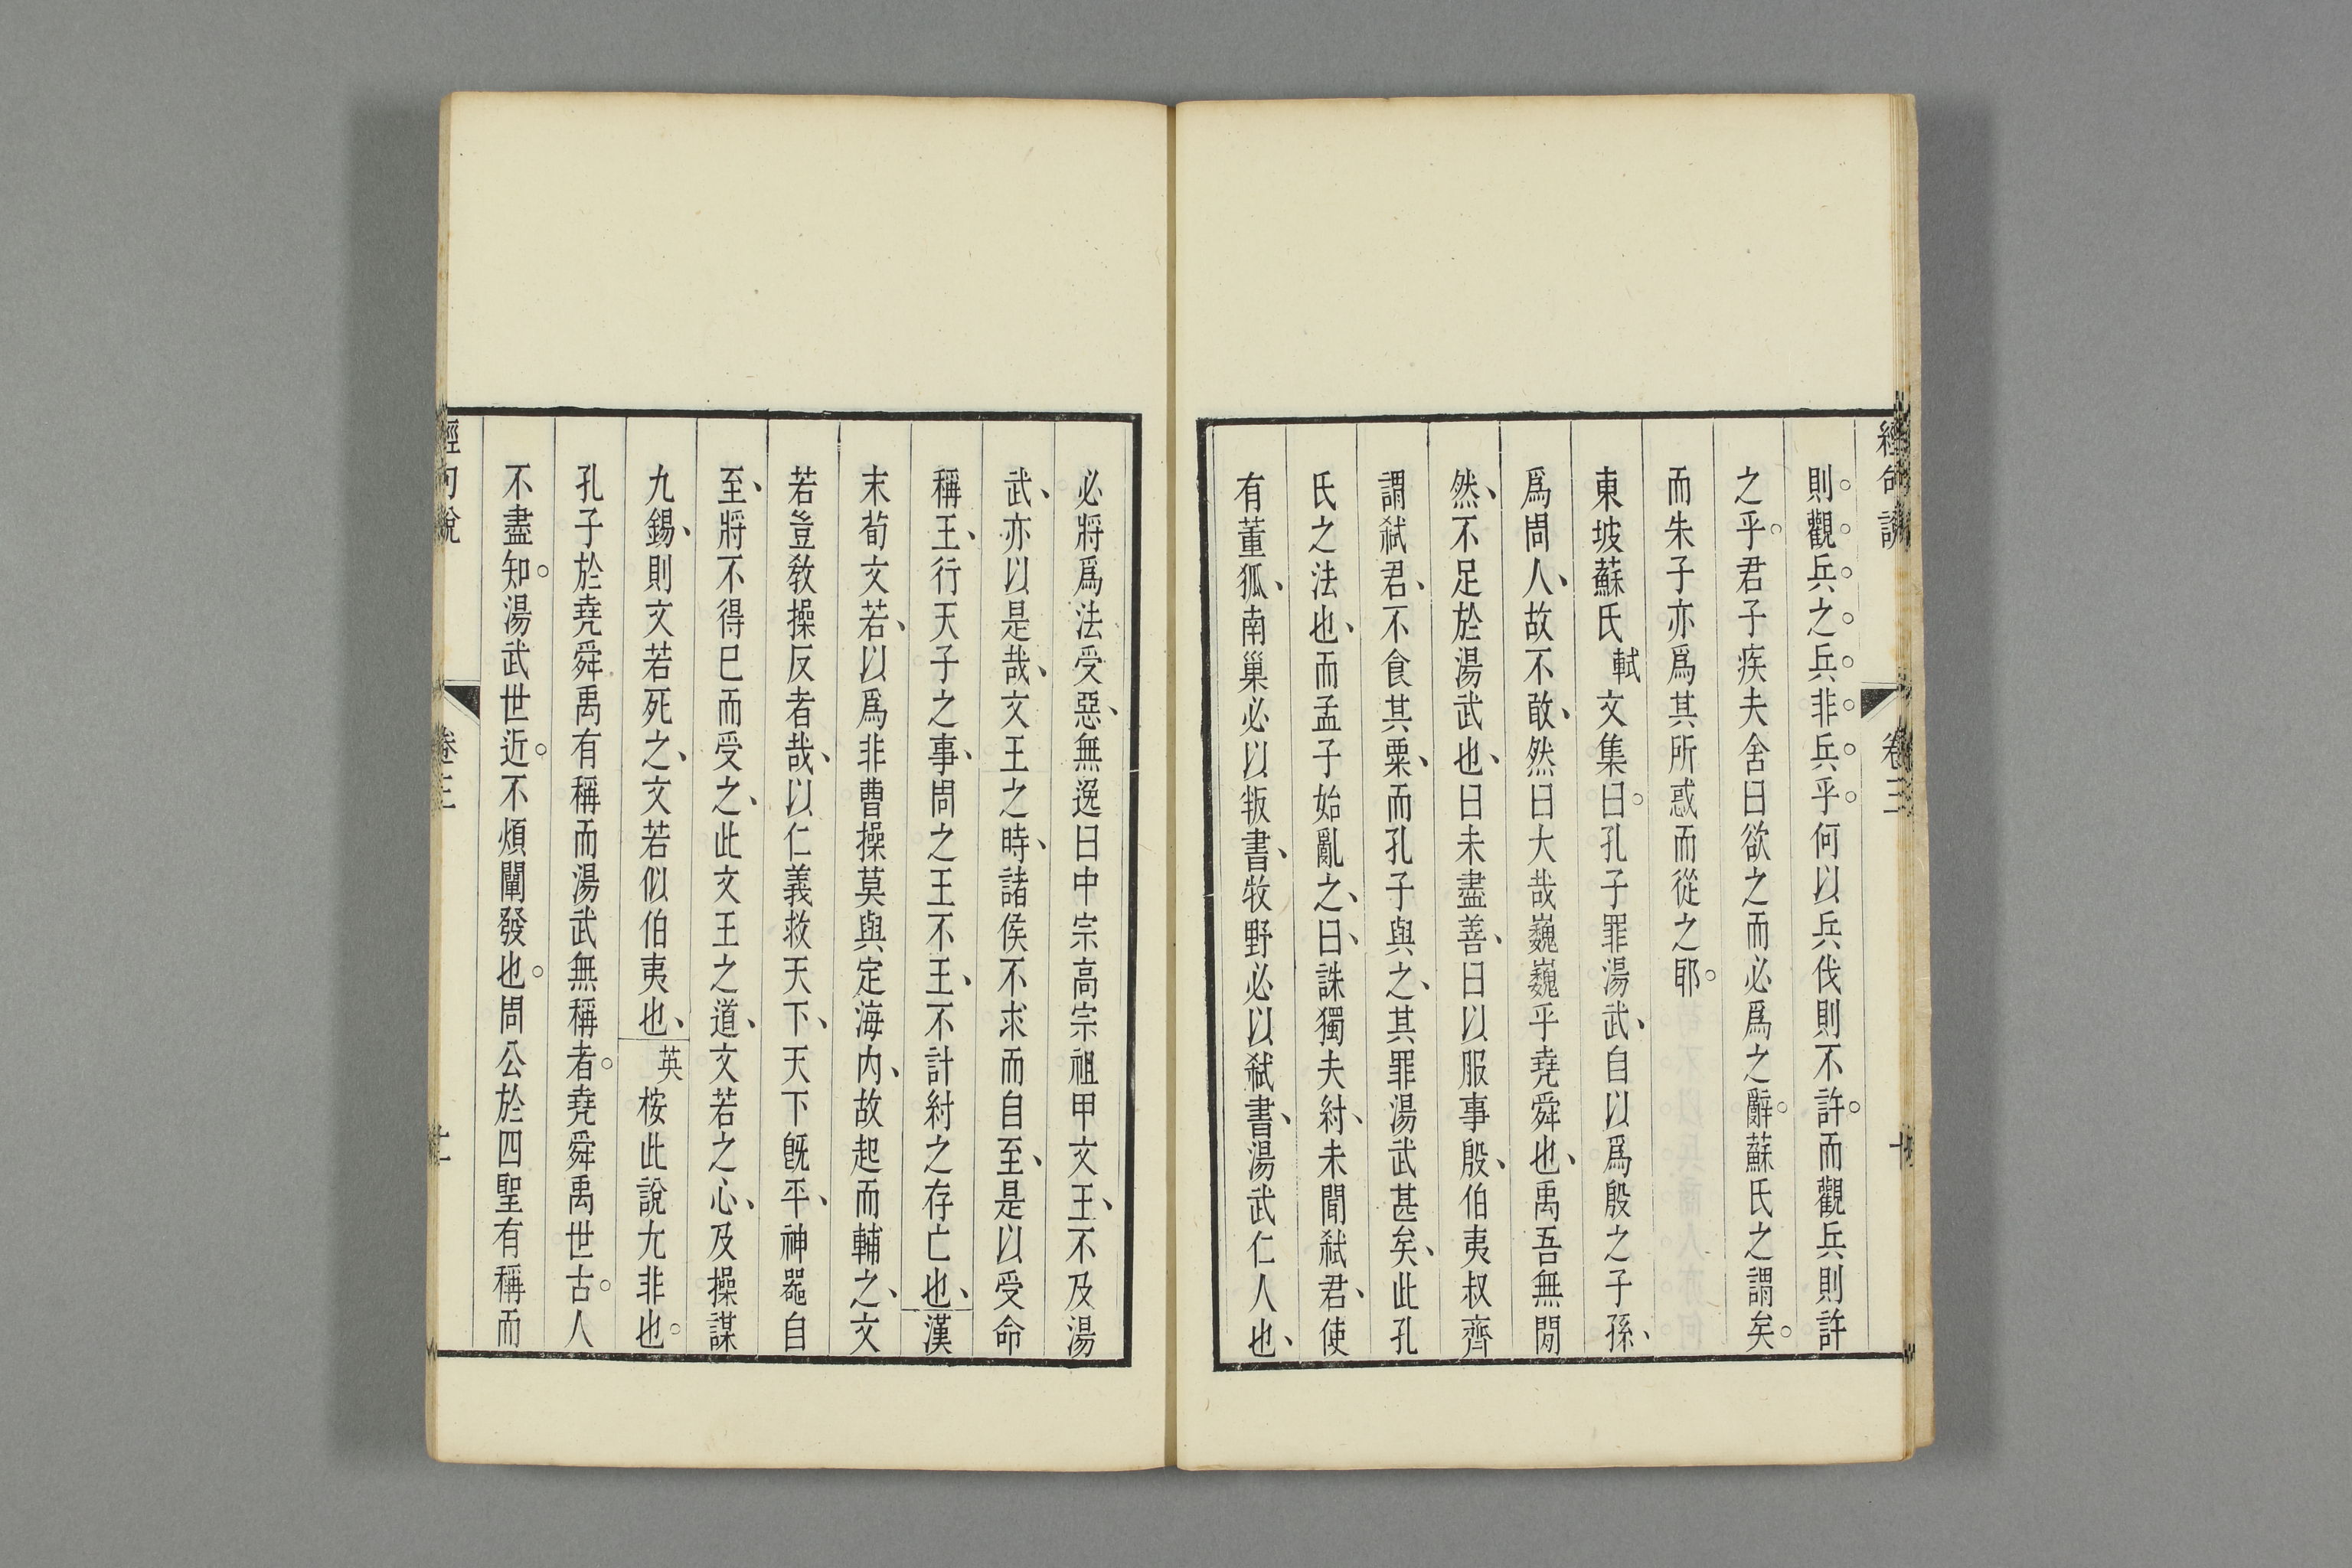 經句說 卷三 十
則。觀。兵。之。兵。非。兵。乎。何以兵伐則不許。而觀兵則許
之乎。君子疾夫舍曰欲之而必爲之辭。蘇氏之謂矣。
而朱子亦爲其所惑而從之耶。
東坡蘇氏軾文集曰。孔子罪湯武、自以爲殷之子孫、
爲周人、故不敢、然曰大哉巍巍乎堯舜也、禹吾無閒
然、不足於湯武也、曰未盡善、曰以服事殷、伯夷叔齊
謂弒君、不食其粟、而孔子與之、其罪湯武甚矣、此孔
氏之法也、而孟子始亂之、曰、誅獨夫紂、未聞弒君、使
有董狐、南巢必以叛書、牧野必以弒書、湯武仁人也、
必將爲法受惡、無逸曰中宗高宗祖甲文王、不及湯
武、亦以是哉、文王之時、諸侯不求而自至、是以受命
稱王、行天子之事、周之王不王、不計紂之存亡也、漢
末荀文若、以爲非曹操莫與定海內、故起而輔之、文
若豈敎操反者哉、以仁義救天下、天下旣平、神器自
至、將不得已而受之、此文王之道、文若之心、及操謀
九錫、則文若死之、文若似伯夷也、英桉此說尤非也。
孔子於堯舜禹有稱而湯武無稱者。堯舜禹世古。人
不盡知。湯武世近。不煩闡發也。周公於四聖有稱而
經句說 卷三